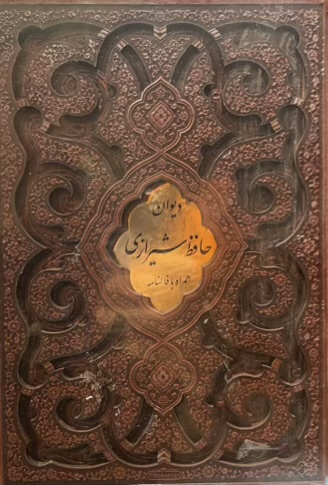 دیوان
حافظ شیرازی
همراه با فالنامه